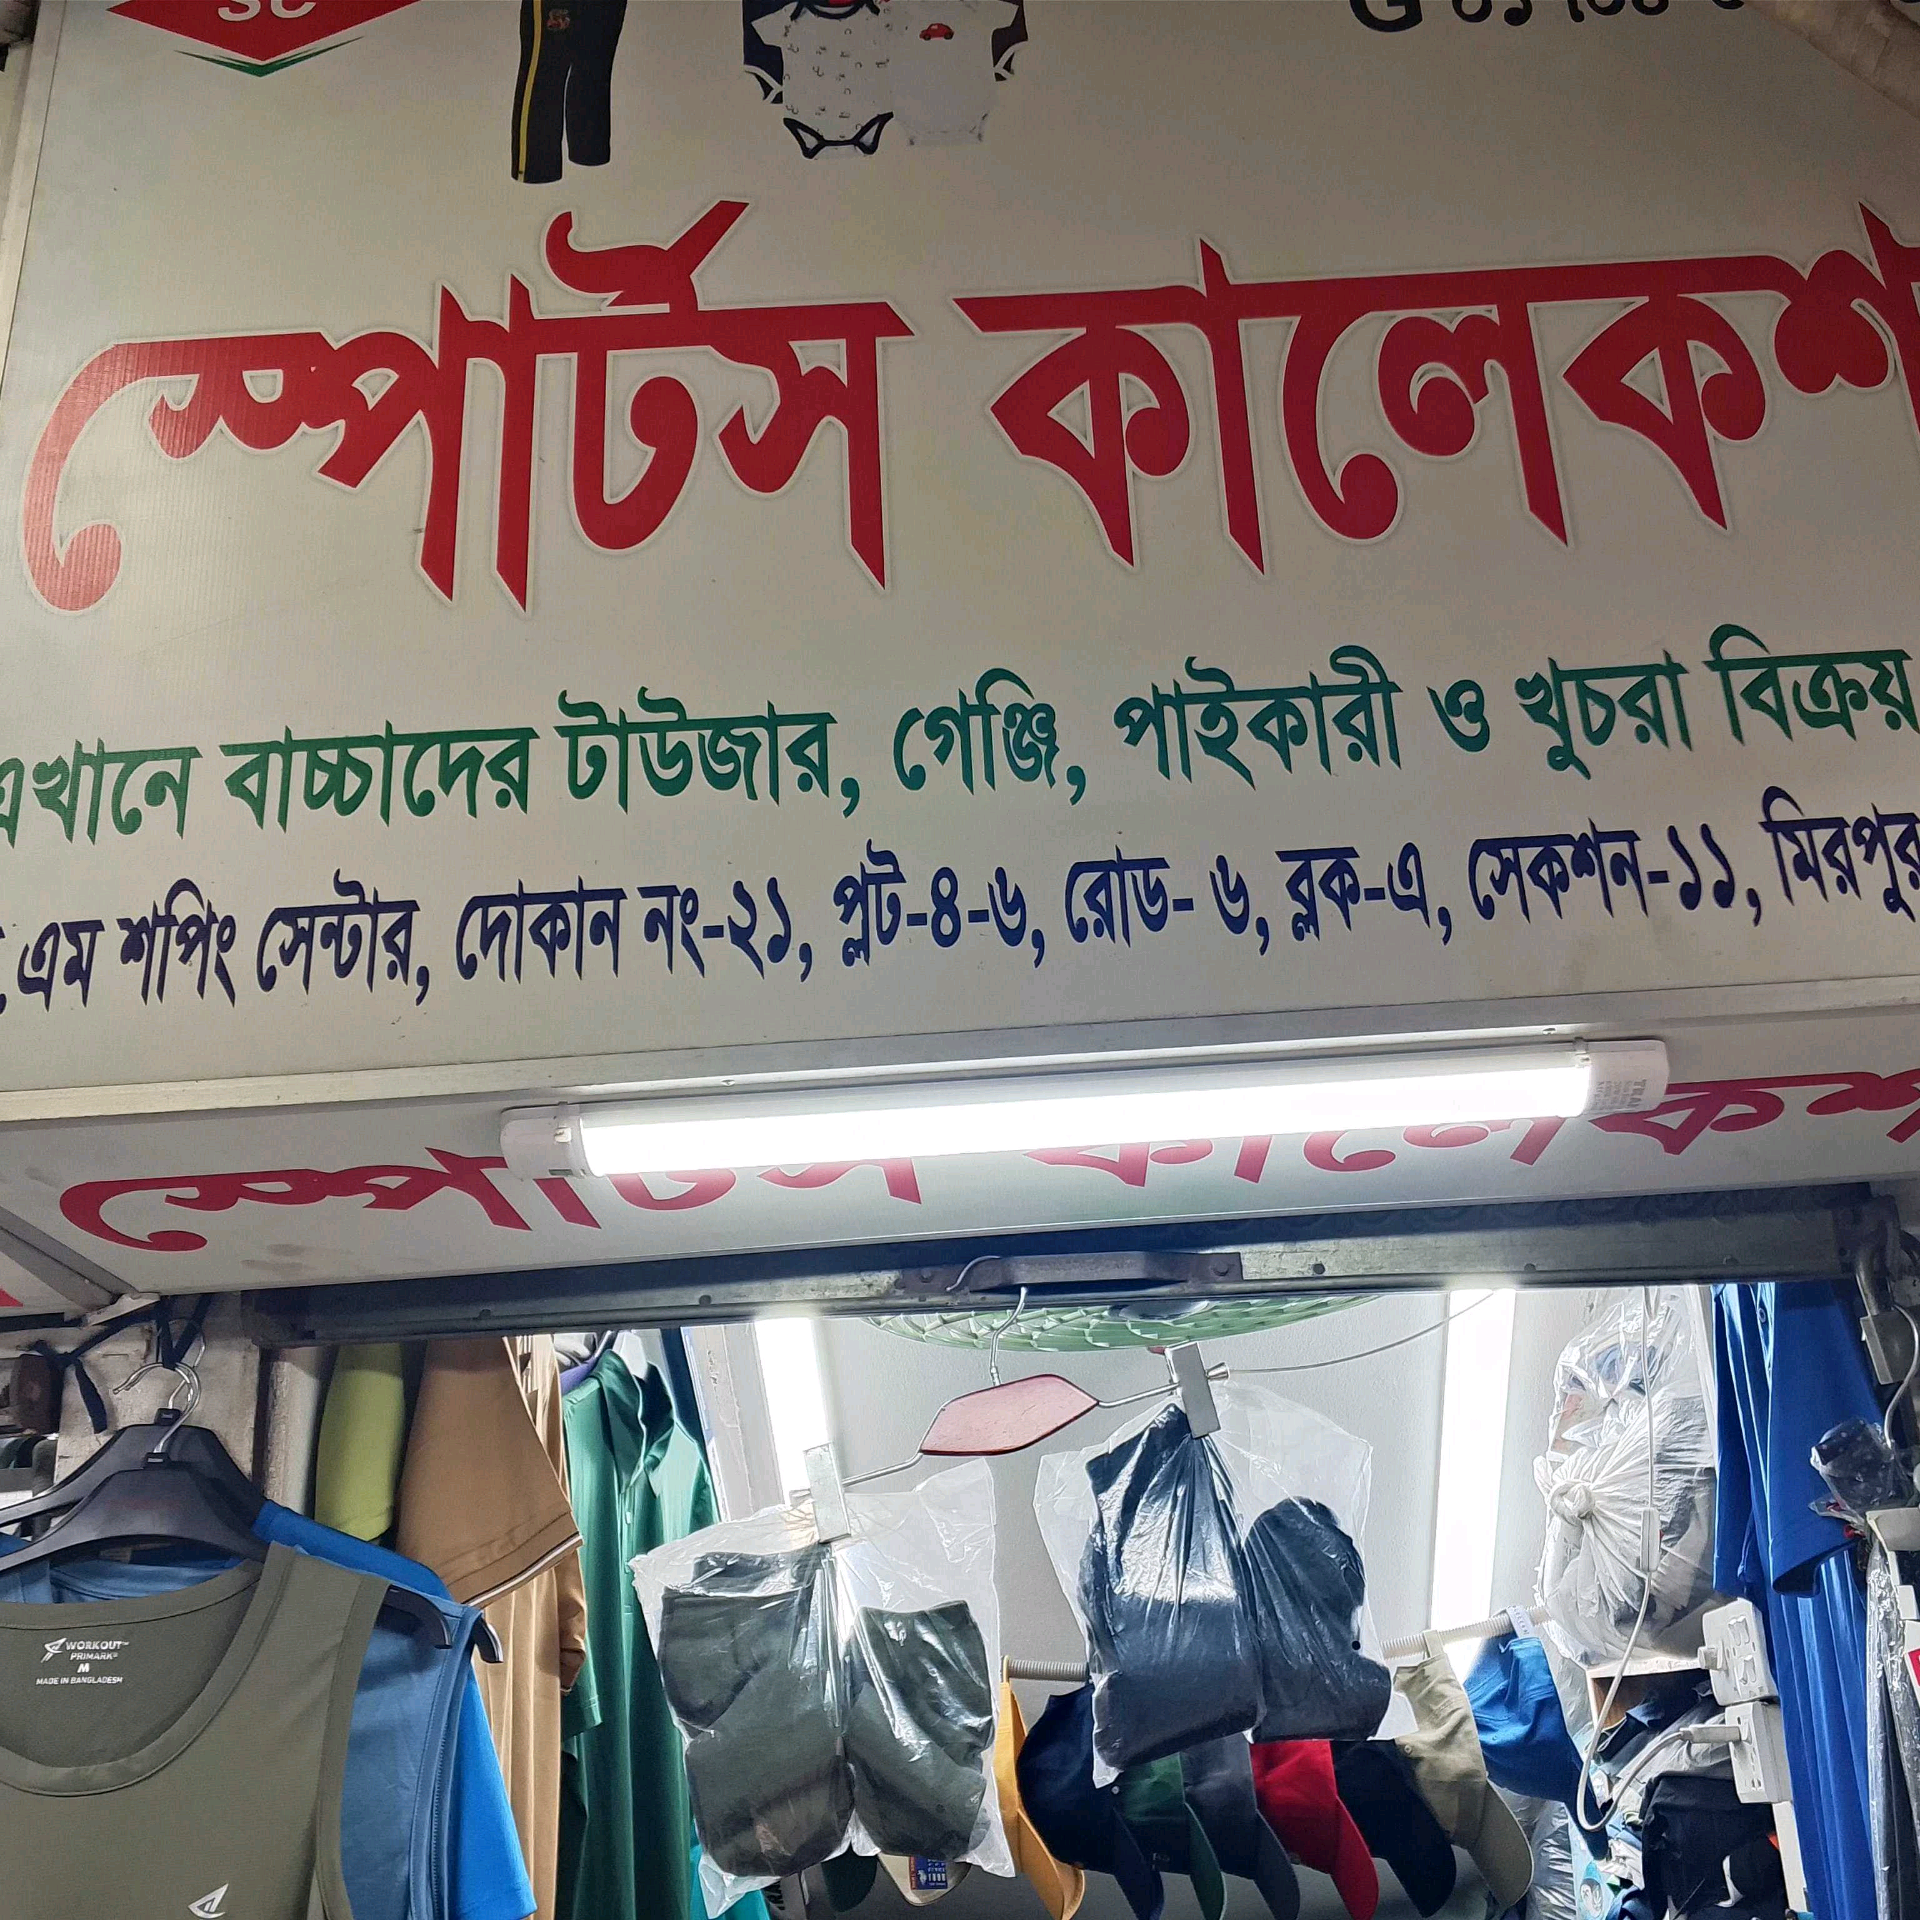 SC
স্পোর্টস কালেকশ
এখানে বাচ্চাদের টাউজার, গেঞ্জি, পাইকারী ও খুচরা বিক্রয়
এম শপিং সেন্টার, দোকান নং-২১, প্লট-৪-৬, রোড- ৬, ব্লক-এ, সেকশন-১১, মিরপুর
স্পোর্টস কালেকশ
WORKOUT
PRIMARK
M
MADE IN BANGLADESH